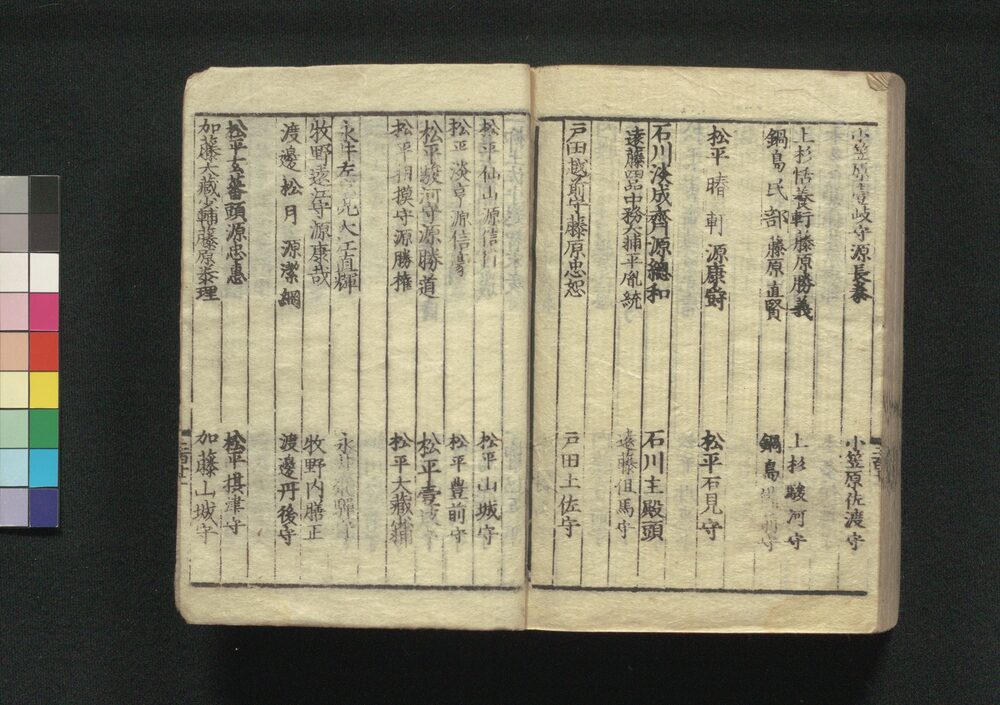 小笠原壹岐守源長泰 小笠原佐渡守
上杉恬養軒藤原勝義 上杉駿河守
鍋島民部藤原直賢 鍋島 守
松平晴軒源康爵 松平石見守
石川淡成齋源總和 石川主殿頭
遠藤中務大輔平胤統 遠藤但馬守
戸田越前守藤原忠恕 戸田土佐守
松平仙山源信行 松平山城守
松平淡身源信 松平豊前守
松平駿河守源勝道 松平壹岐守
松平相摸守源勝権 松平大藏少輔
永井左 亮大江直輝 永井 守
牧野遠江守源康哉 牧野内膳正
渡邊松月源潔綱 渡邊丹後守
松平玄蕃頭源忠恵 松平摂津守
加藤大藏少輔藤原泰理 加藤山城守